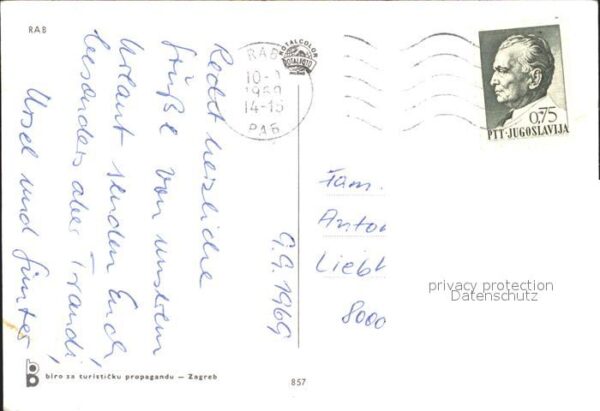 RAB
Recht herzliche
Grüße von unserem
Urlaub senden Euch,
besonders aber Traudi,
Ursel und Günter!
9.9.1969
ROTALCOLOR
ROTALFOTO
RAB
10-9
1969
14-15
РАБ
0,75
PTT-JUGOSLAVIJA
Fam.
Anton
Liebh
8000
privacy protection
Datenschutz
biro za turističku propagandu — Zagreb
857